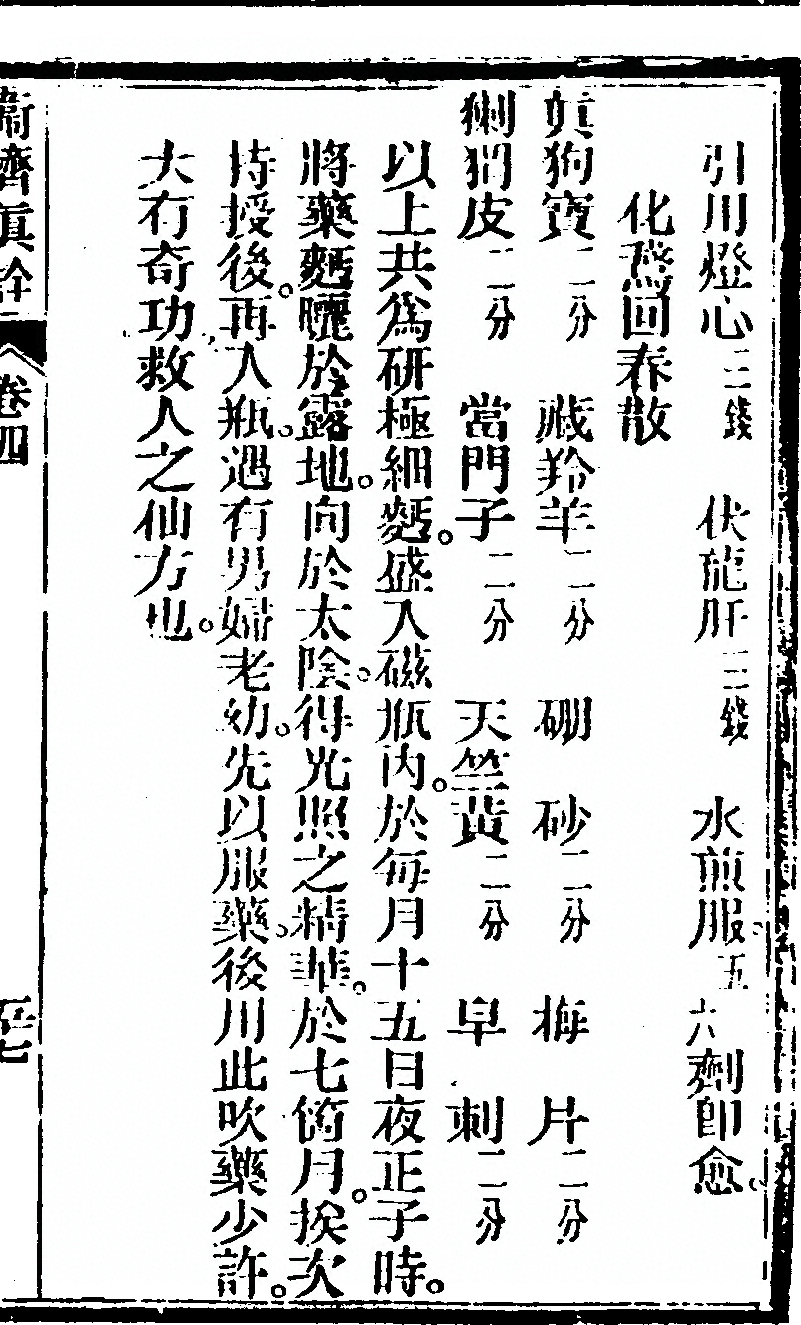 引用燈心三錢　伏龍肝三錢　水煎服。五六劑即愈。
化舊回春散
真狗寶二分　羚羊二分　硼砂二分　梅片二分
刺猬皮二分　當門子二分　天竺黃二分　皁刺二分
以上共為研極細麪。盛入磁瓶內。於每月十五日夜正子時。
將藥麪曬於露地。向於太陰。得光照之精華。於七個月。挨次
持授後。再入瓶。遇有男婦老幼。先以服藥。後用此吹藥少許。
大有奇功救人之仙方也。
卷四